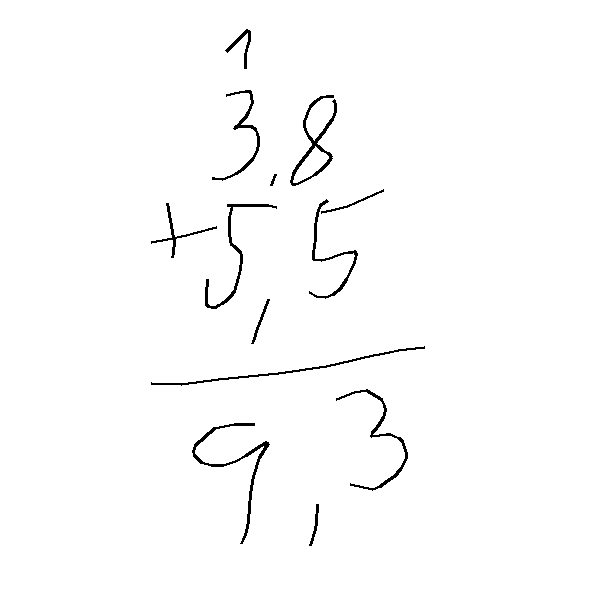 1
3,8
+5,5
9,3